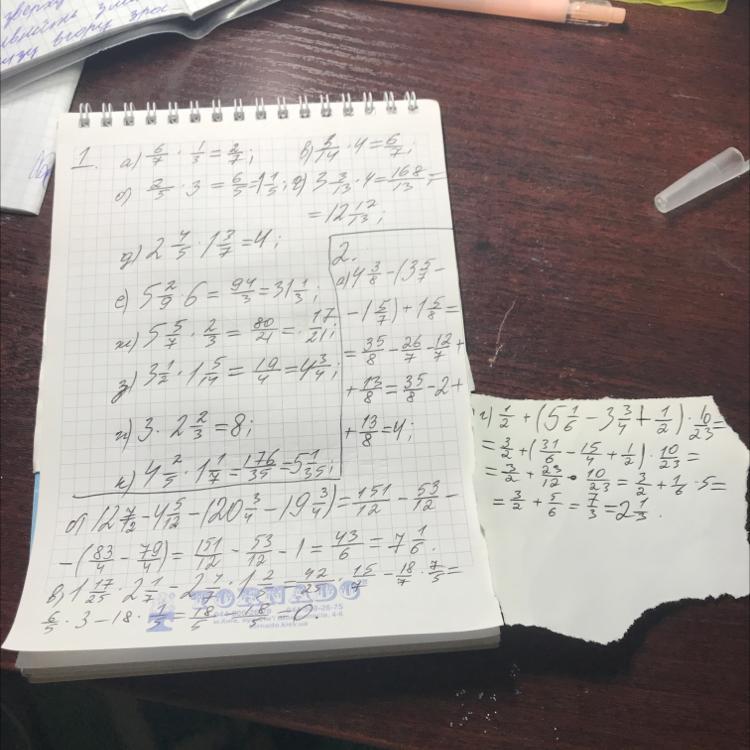 зверху
1. а) 6/7 · 1/3 = 2/7; в) 3/14 · 4 = 6/7;
б) 2/5 · 3 = 6/5 = 1 1/5; г) 3 3/13 · 4 = 168/13 =
= 12 12/13;
д) 2 4/5 · 1 3/7 = 4;
е) 5 2/9 · 6 = 94/3 = 31 1/3;
ж) 5 5/7 · 2/3 = 80/21 = 17/21;
з) 3 1/2 · 1 5/14 = 19/4 = 4 3/4;
и) 3 · 2 2/3 = 8;
к) 4 2/5 · 1 1/7 = 176/35 = 5 1/35;
2.
а) 4 3/8 - (3 5/7 -
- 1 5/7) + 1 5/8 =
= 35/8 - 26/7 - 12/7 +
+ 13/8 = 35/8 - 2 +
+ 13/8 = 4;
б) 12 7/12 - 4 5/12 - (20 3/4 - 19 3/4) = 151/12 - 53/12 -
- (83/4 - 79/4) = 151/12 - 53/12 - 1 = 43/6 = 7 1/6.
в) 1 17/25 · 2 1/7 - 2 4/7 · 1 2/5 = 42/25 · 15/7 - 18/7 · 7/5 =
6/5 · 3 - 18 · 1/5 = 18/5 - 18/5 = 0.
г) 1/2 + (5 1/6 - 3 3/4 + 1/2) · 10/23 =
= 3/2 + (31/6 - 15/4 + 1/2) · 10/23 =
= 3/2 + 23/12 · 10/23 = 3/2 + 1/6 · 5 =
= 3/2 + 5/6 = 7/3 = 2 1/3.